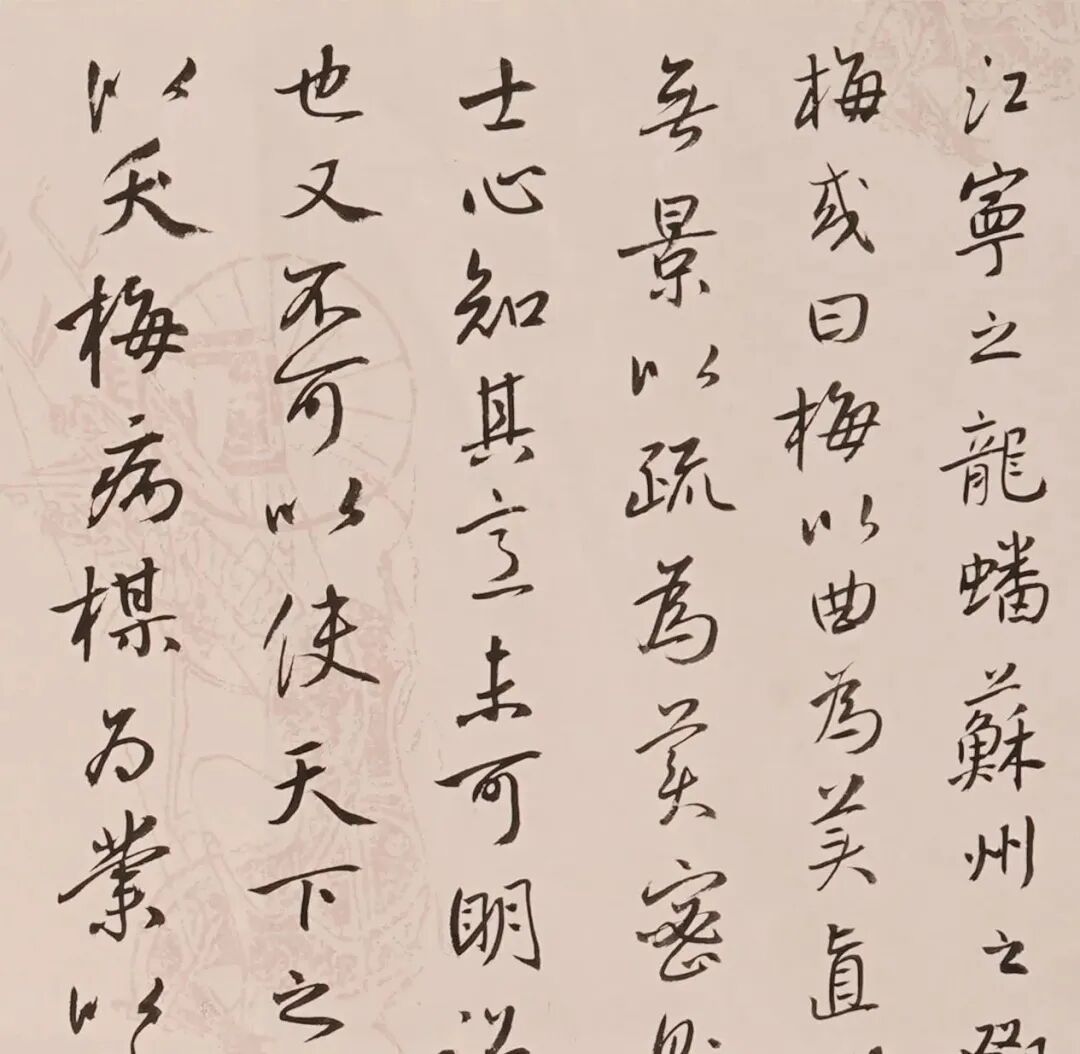 江寧之龍蟠蘇州之
梅或曰梅以曲為美直
無景以疏為美密
士心知其意未可明
也又不可以使天下之
以夭梅病楳为業以